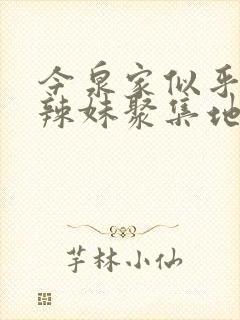 今泉家似乎
辣妹聚集地
芋林小仙